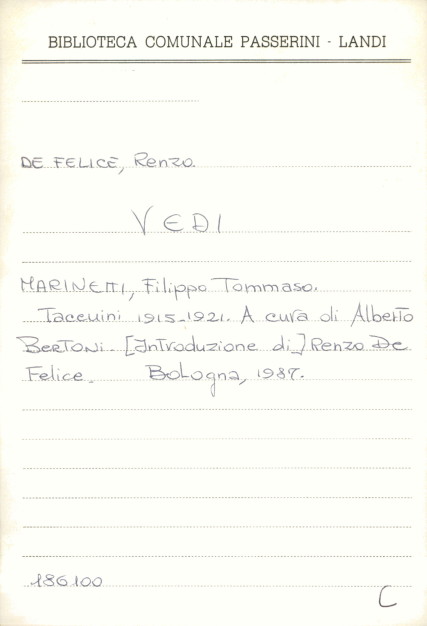 BIBLIOTECA COMUNALE PASSERINI - LANDI
DE FELICE, Renzo.
VEDI
MARINETTI, Filippo Tommaso.
Taccuini 1915-1921. A cura di Alberto
BERTONI. [Introduzione di] Renzo De
Felice. Bologna, 1987.
186100
C